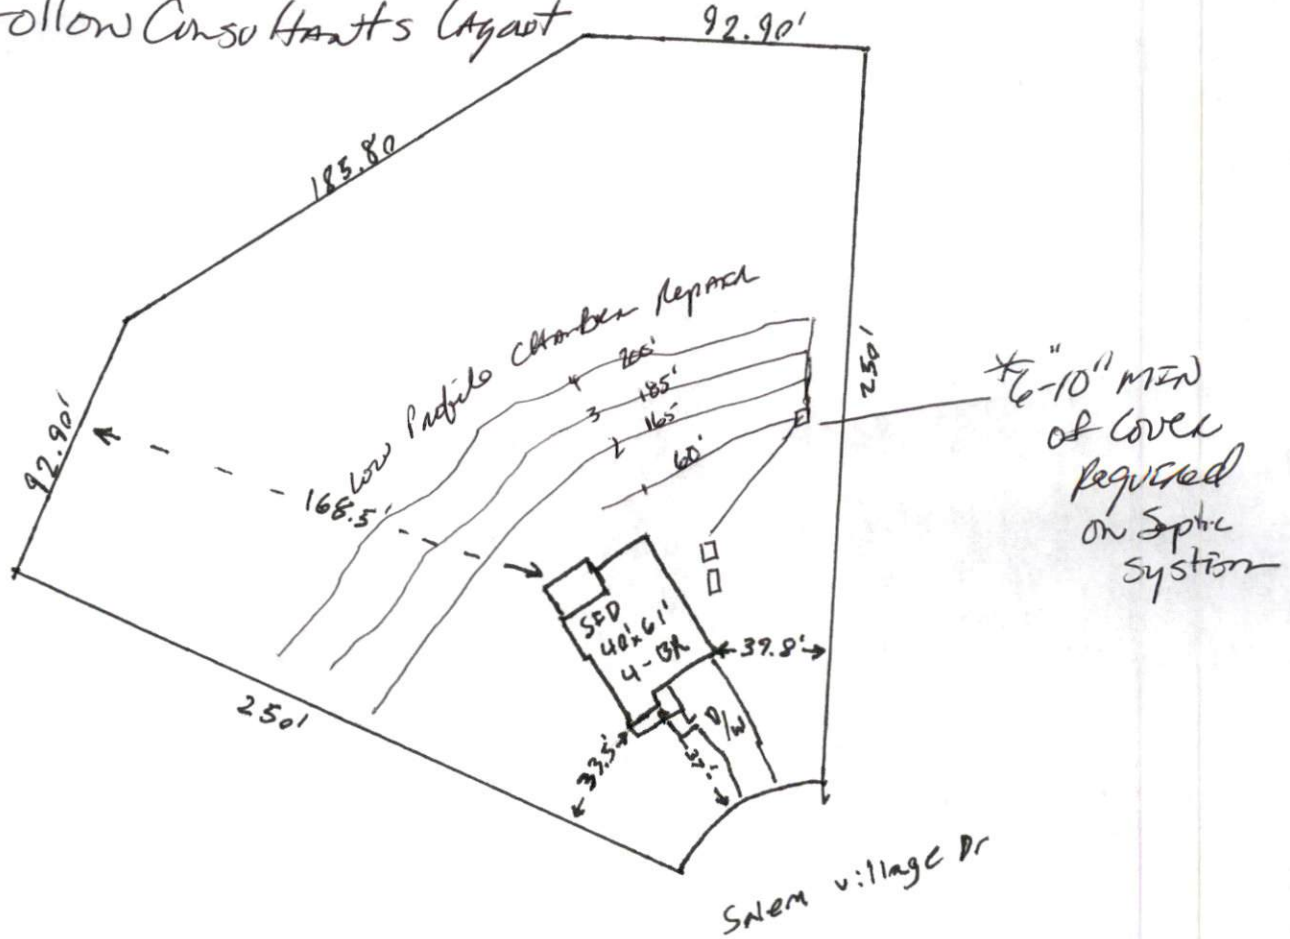 ollow Consultants Layout
92.90'
185.80
250'
Low Profile Chamber Repair
200'
4
185'
3
165'
2
60'
1
92.90'
168.5'
*6"-10" MIN
of cover
Required
on Septic
system
SFD
40'x61'
4-BR
39.8'
D/W
250'
33.5'
37'
Salem village Dr